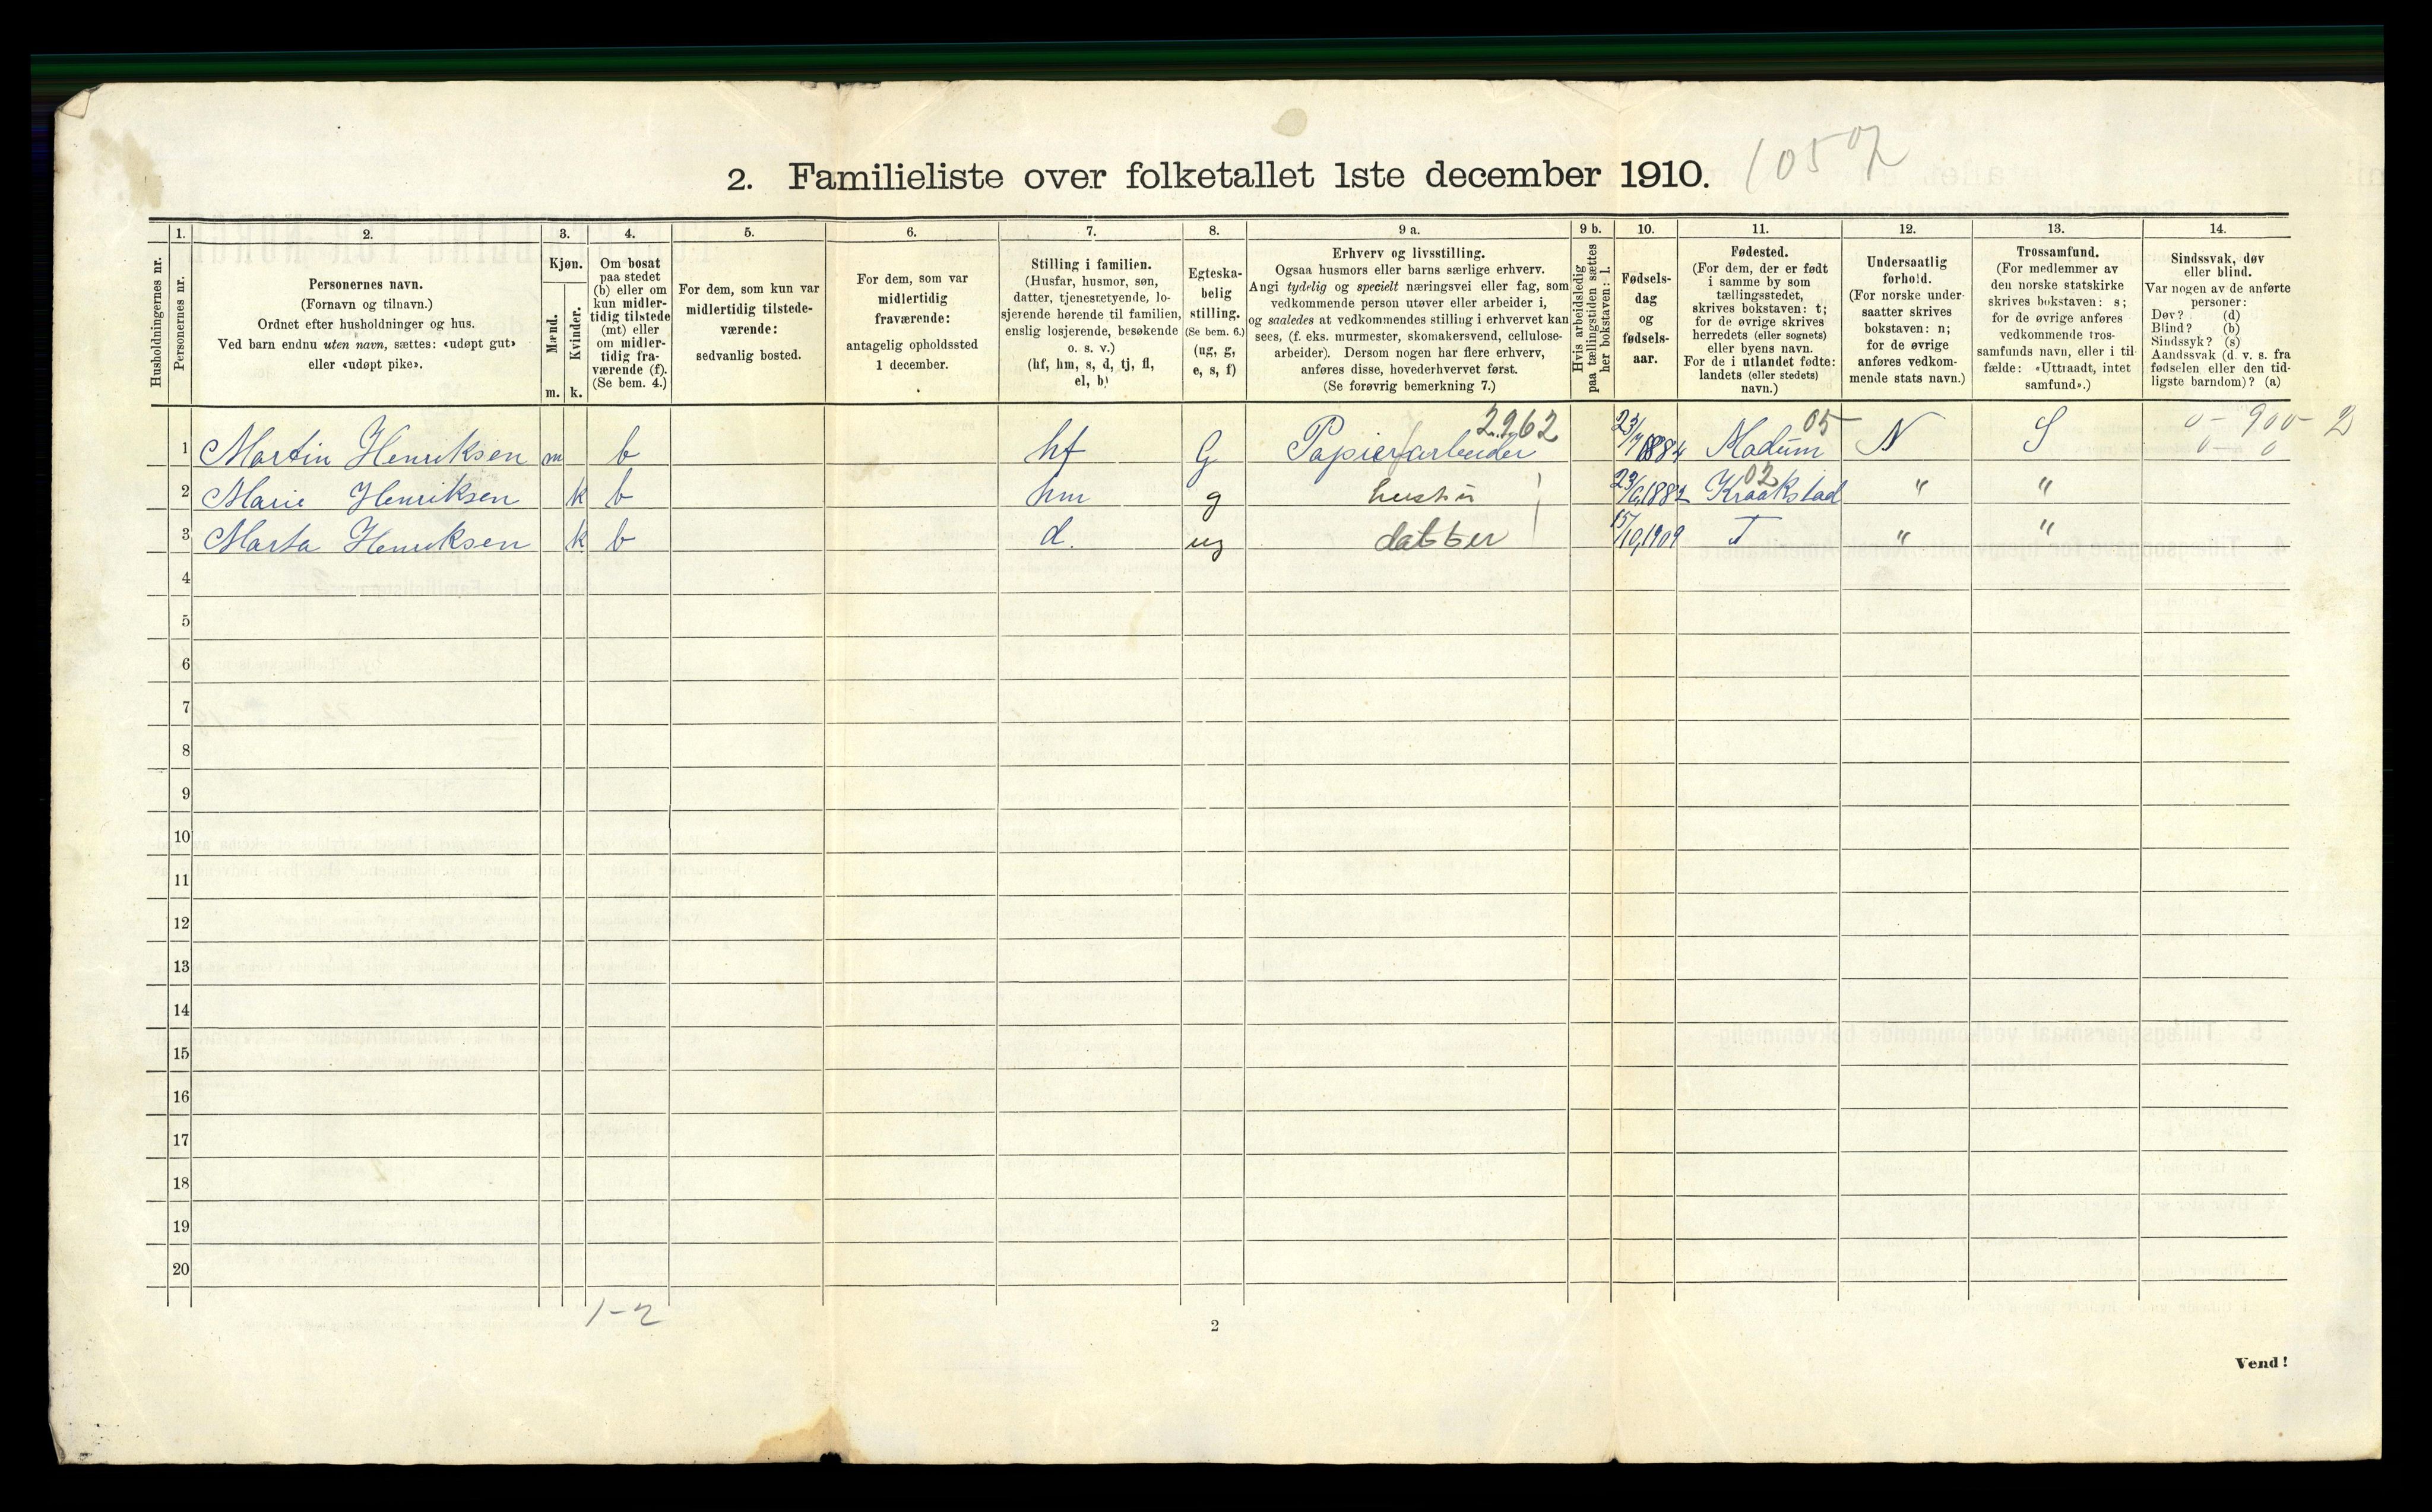 2. Familieliste over folketallet 1ste december 1910.
1057
Husholdningernes nr.
1. Personernes nr.
2. Personernes navn.
(Fornavn og tilnavn.)
Ordnet efter husholdninger og hus.
Ved barn endnu uten navn, sættes: «udøpt gut»
eller «udøpt pike».
3. Kjøn.
Mænd. m.
Kvinder. k.
4. Om bosat
paa stedet
(b) eller om
kun midler-
tidig tilstede
(mt) eller
om midler-
tidig fra-
værende (f).
(Se bem. 4.)
5. For dem, som kun var
midlertidig tilstede-
værende:
sedvanlig bosted.
6. For dem, som var
midlertidig
fraværende:
antagelig opholdssted
1 december.
7. Stilling i familien.
(Husfar, husmor, søn,
datter, tjenestetyende, lo-
sjerende hørende til familien,
enslig losjerende, besøkende
o. s. v.)
(hf, hm, s, d, tj, fl,
el, b)
8. Egteska-
belig
stilling.
(Se bem. 6.)
(ug, g,
e, s, f)
9 a. Erhverv og livsstilling.
Ogsaa husmors eller barns særlige erhverv.
Angi tydelig og specielt næringsvei eller fag, som
vedkommende person utøver eller arbeider i,
og saaledes at vedkommendes stilling i erhvervet kan
sees, (f. eks. murmester, skomakersvend, cellulose-
arbeider). Dersom nogen har flere erhverv,
anføres disse, hovederhvervet først.
(Se forøvrig bemerkning 7.)
9 b. Hvis arbeidsledig
paa tællingstiden sættes
her bokstaven: l.
10. Fødsels-
dag
og
fødsels-
aar.
11. Fødested.
(For dem, der er født
i samme by som
tællingsstedet,
skrives bokstaven: t;
for de øvrige skrives
herredets (eller sognets)
eller byens navn.
For de i utlandet fødte:
landets (eller stedets)
navn.)
12. Undersaatlig
forhold.
(For norske under-
saatter skrives
bokstaven: n;
for de øvrige
anføres vedkom-
mende stats navn.)
13. Trossamfund.
(For medlemmer av
den norske statskirke
skrives bokstaven: s;
for de øvrige anføres
vedkommende tros-
samfunds navn, eller i til-
fælde: «Uttraadt, intet
samfund».)
14. Sindssvak, døv
eller blind.
Var nogen av de anførte
personer:
Døv? (d)
Blind? (b)
Sindssyk? (s)
Aandssvak (d. v. s. fra
fødselen eller den tid-
ligste barndom)? (a)
2962 05 0 - 900 - 2
1 Martin Henriksen m b hf G Papierarbeider 1884 Modum N S 0 - 0
02
2 Marie Henriksen k b hm g hustru 1882 Kraakstad " "
3 Marta Henriksen k b d. ug datter 15/10,1909 T " "
4
5
6
7
8
9
10
11
12
13
14
15
16
17
18
19
20
1-2
2
Vend!